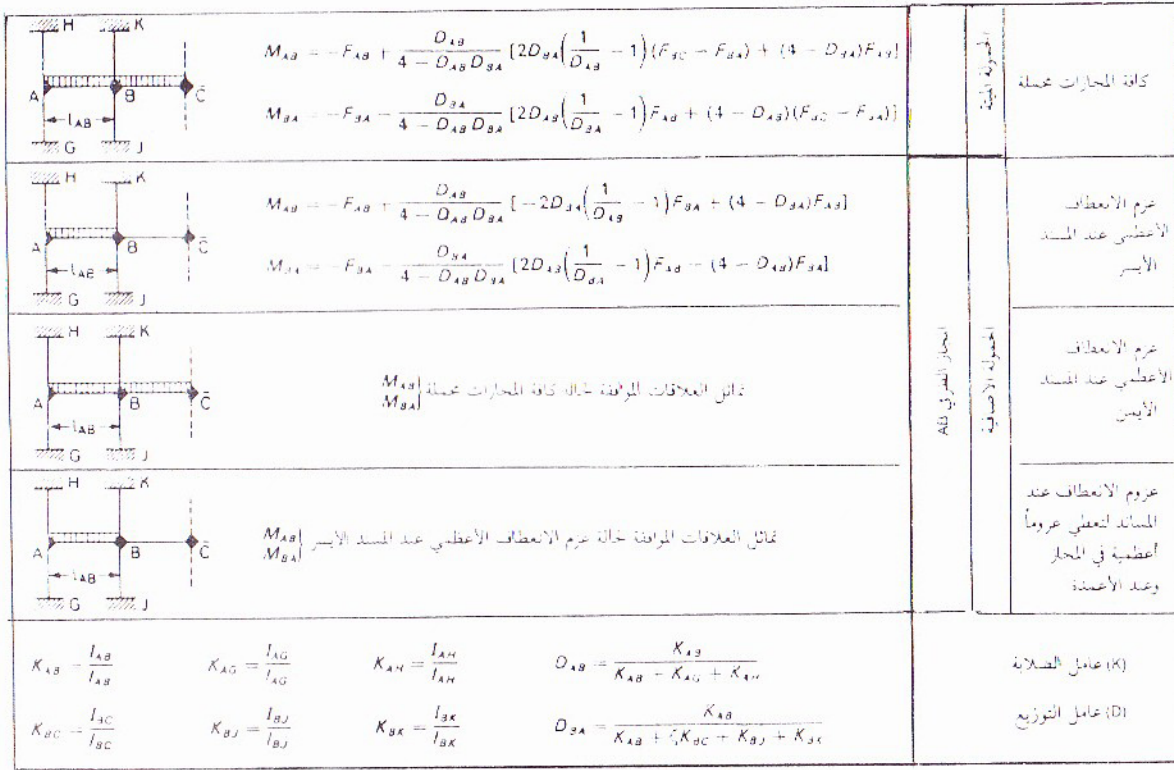 H K
A B C
l_AB
G J
M_AB = -F_AB + D_AB / (4 - D_AB D_BA) [2D_BA (1/D_AB - 1) (F_BC - F_BA) + (4 - D_BA) F_AB]
M_BA = -F_BA - D_BA / (4 - D_AB D_BA) [2D_AB (1/D_BA - 1) F_AB + (4 - D_AB) (F_BC - F_BA)]
الحمولة الميتة
كافة المجازات محملة
H K
A B C
l_AB
G J
M_AB = -F_AB + D_AB / (4 - D_AB D_BA) [-2D_BA (1/D_AB - 1) F_BA + (4 - D_BA) F_AB]
M_BA = -F_BA - D_BA / (4 - D_AB D_BA) [2D_AB (1/D_BA - 1) F_AB - (4 - D_AB) F_BA]
المجاز الطرفي AB
الحمولة الاضافية
عزم الانعطاف
الأعظمي عند المسند
الأيسر
H K
A B C
l_AB
G J
M_AB
M_BA
تماثل العلاقات الموافقة لحالة كافة المجازات محملة
عزم الانعطاف
الأعظمي عند المسند
الأيمن
H K
A B C
l_AB
G J
M_AB
M_BA
تماثل العلاقات الموافقة لحالة عزم الانعطاف الأعظمي عند المسند الأيسر
عزوم الانعطاف عند
المساند لتعطي عزوماً
أعظمية في المجاز
وعند الأعمدة
K_AB = I_AB / l_AB K_AG = I_AG / l_AG K_AH = I_AH / l_AH D_AB = K_AB / (K_AB + K_AG + K_AH)
(K) عامل الصلابة
K_BC = I_BC / l_BC K_BJ = I_BJ / l_BJ K_BK = I_BK / l_BK D_BA = K_AB / (K_AB + K_BC + K_BJ + K_BK)
(D) عامل التوزيع